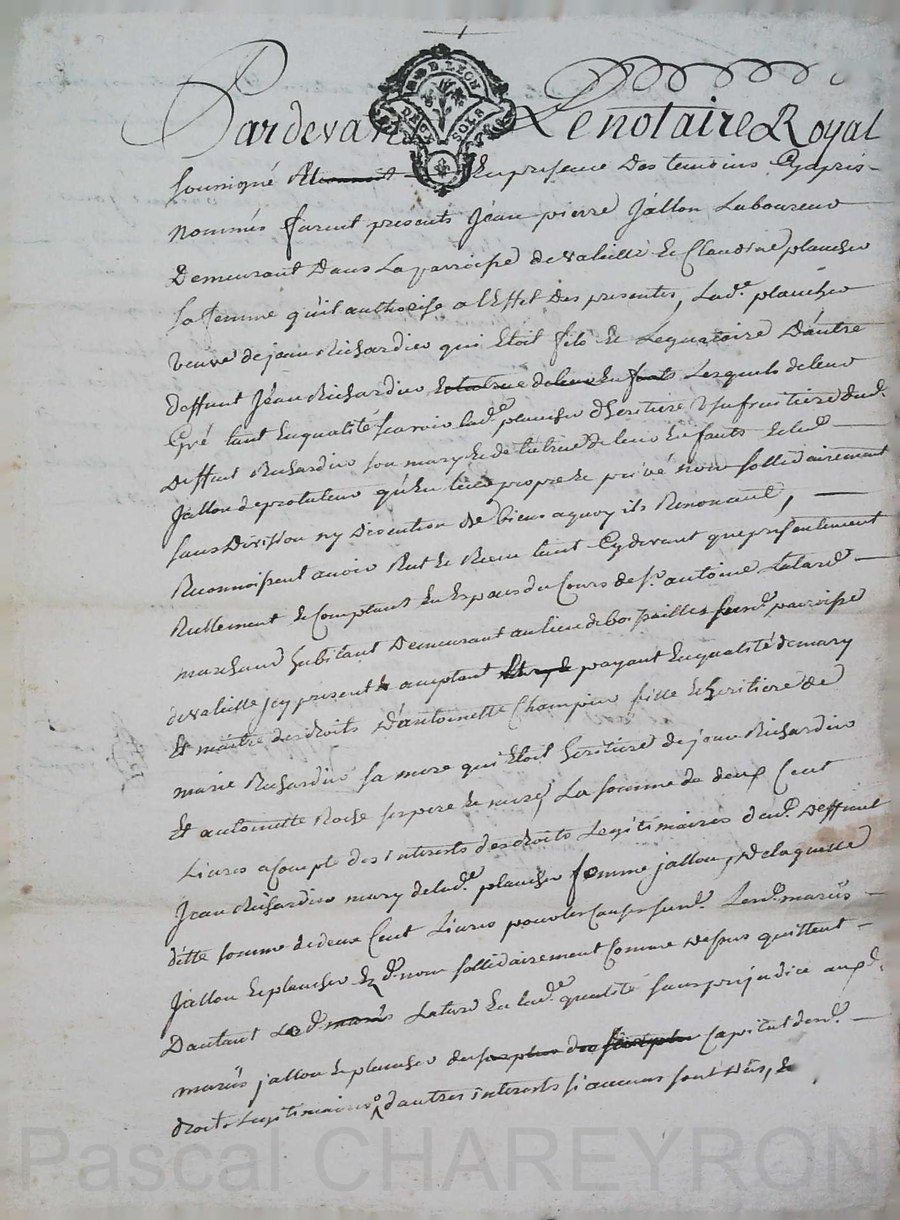 G. D. LEON
DEUX SOLS
Pardevant Le notaire Royal
soussigné En presence Des temoins Cyapres
nommés furent presents Jean pierre Jallon Laboureur
Demeurant Dans La parroisse de valeille Et Claudine plancher
sa femme qu'il authorise a l'Effet Des presentes, Lad.e plancher
veuve de jean Richardier qui Etoit fils Et Legataire D'autre
deffunt Jean Richardier Lesquels de leur
Gré tant En qualité scavoir lad.e plancher d'heritiere Usufruitiere dud.
Deffunt Richardier son mary Et de de leur Enfants Et led.
Jallon de protuteur qu'En leur propre Et privé nom sollidairement
sans Division ny Discution de biens a quoy ils Renoncent,
Reconnoissent avoir Eut Et Receu tant Cydevant que presentement
Reellement Et Comptant En Especes du Cours de s.r antoine Latard
marchand habitant Demeurant au lieu de boispaille susd. parroisse
de valeille jcy present Et acceptant payant En qualité de mary
Et maitre des droits D'antoinette Champier fille Et heritiere de
marie Richardier sa mere qui Etoit heritiere de jean Richardier
Et antoinette Roche ses pere Et mere La somme de deux Cent
Livres a Compte des interests des droits Legitimaires dud. Deffunt
Jean Richardier mary de lad.e plancher femme jallon, De laquelle
ditte somme de deux Cent Livres pour les Causes susd. Lesd. mariés
Jallon Et plancher Esd. nom sollidairement Comme Dessus quittent
D'autant Led. Latard En lad.e qualité sans prejudice auxd.
mariés jallon Et plancher du capital desd.
droits Legitimaires d'autres interests si aucuns sont dus, Et
Pascal CHAREYRON